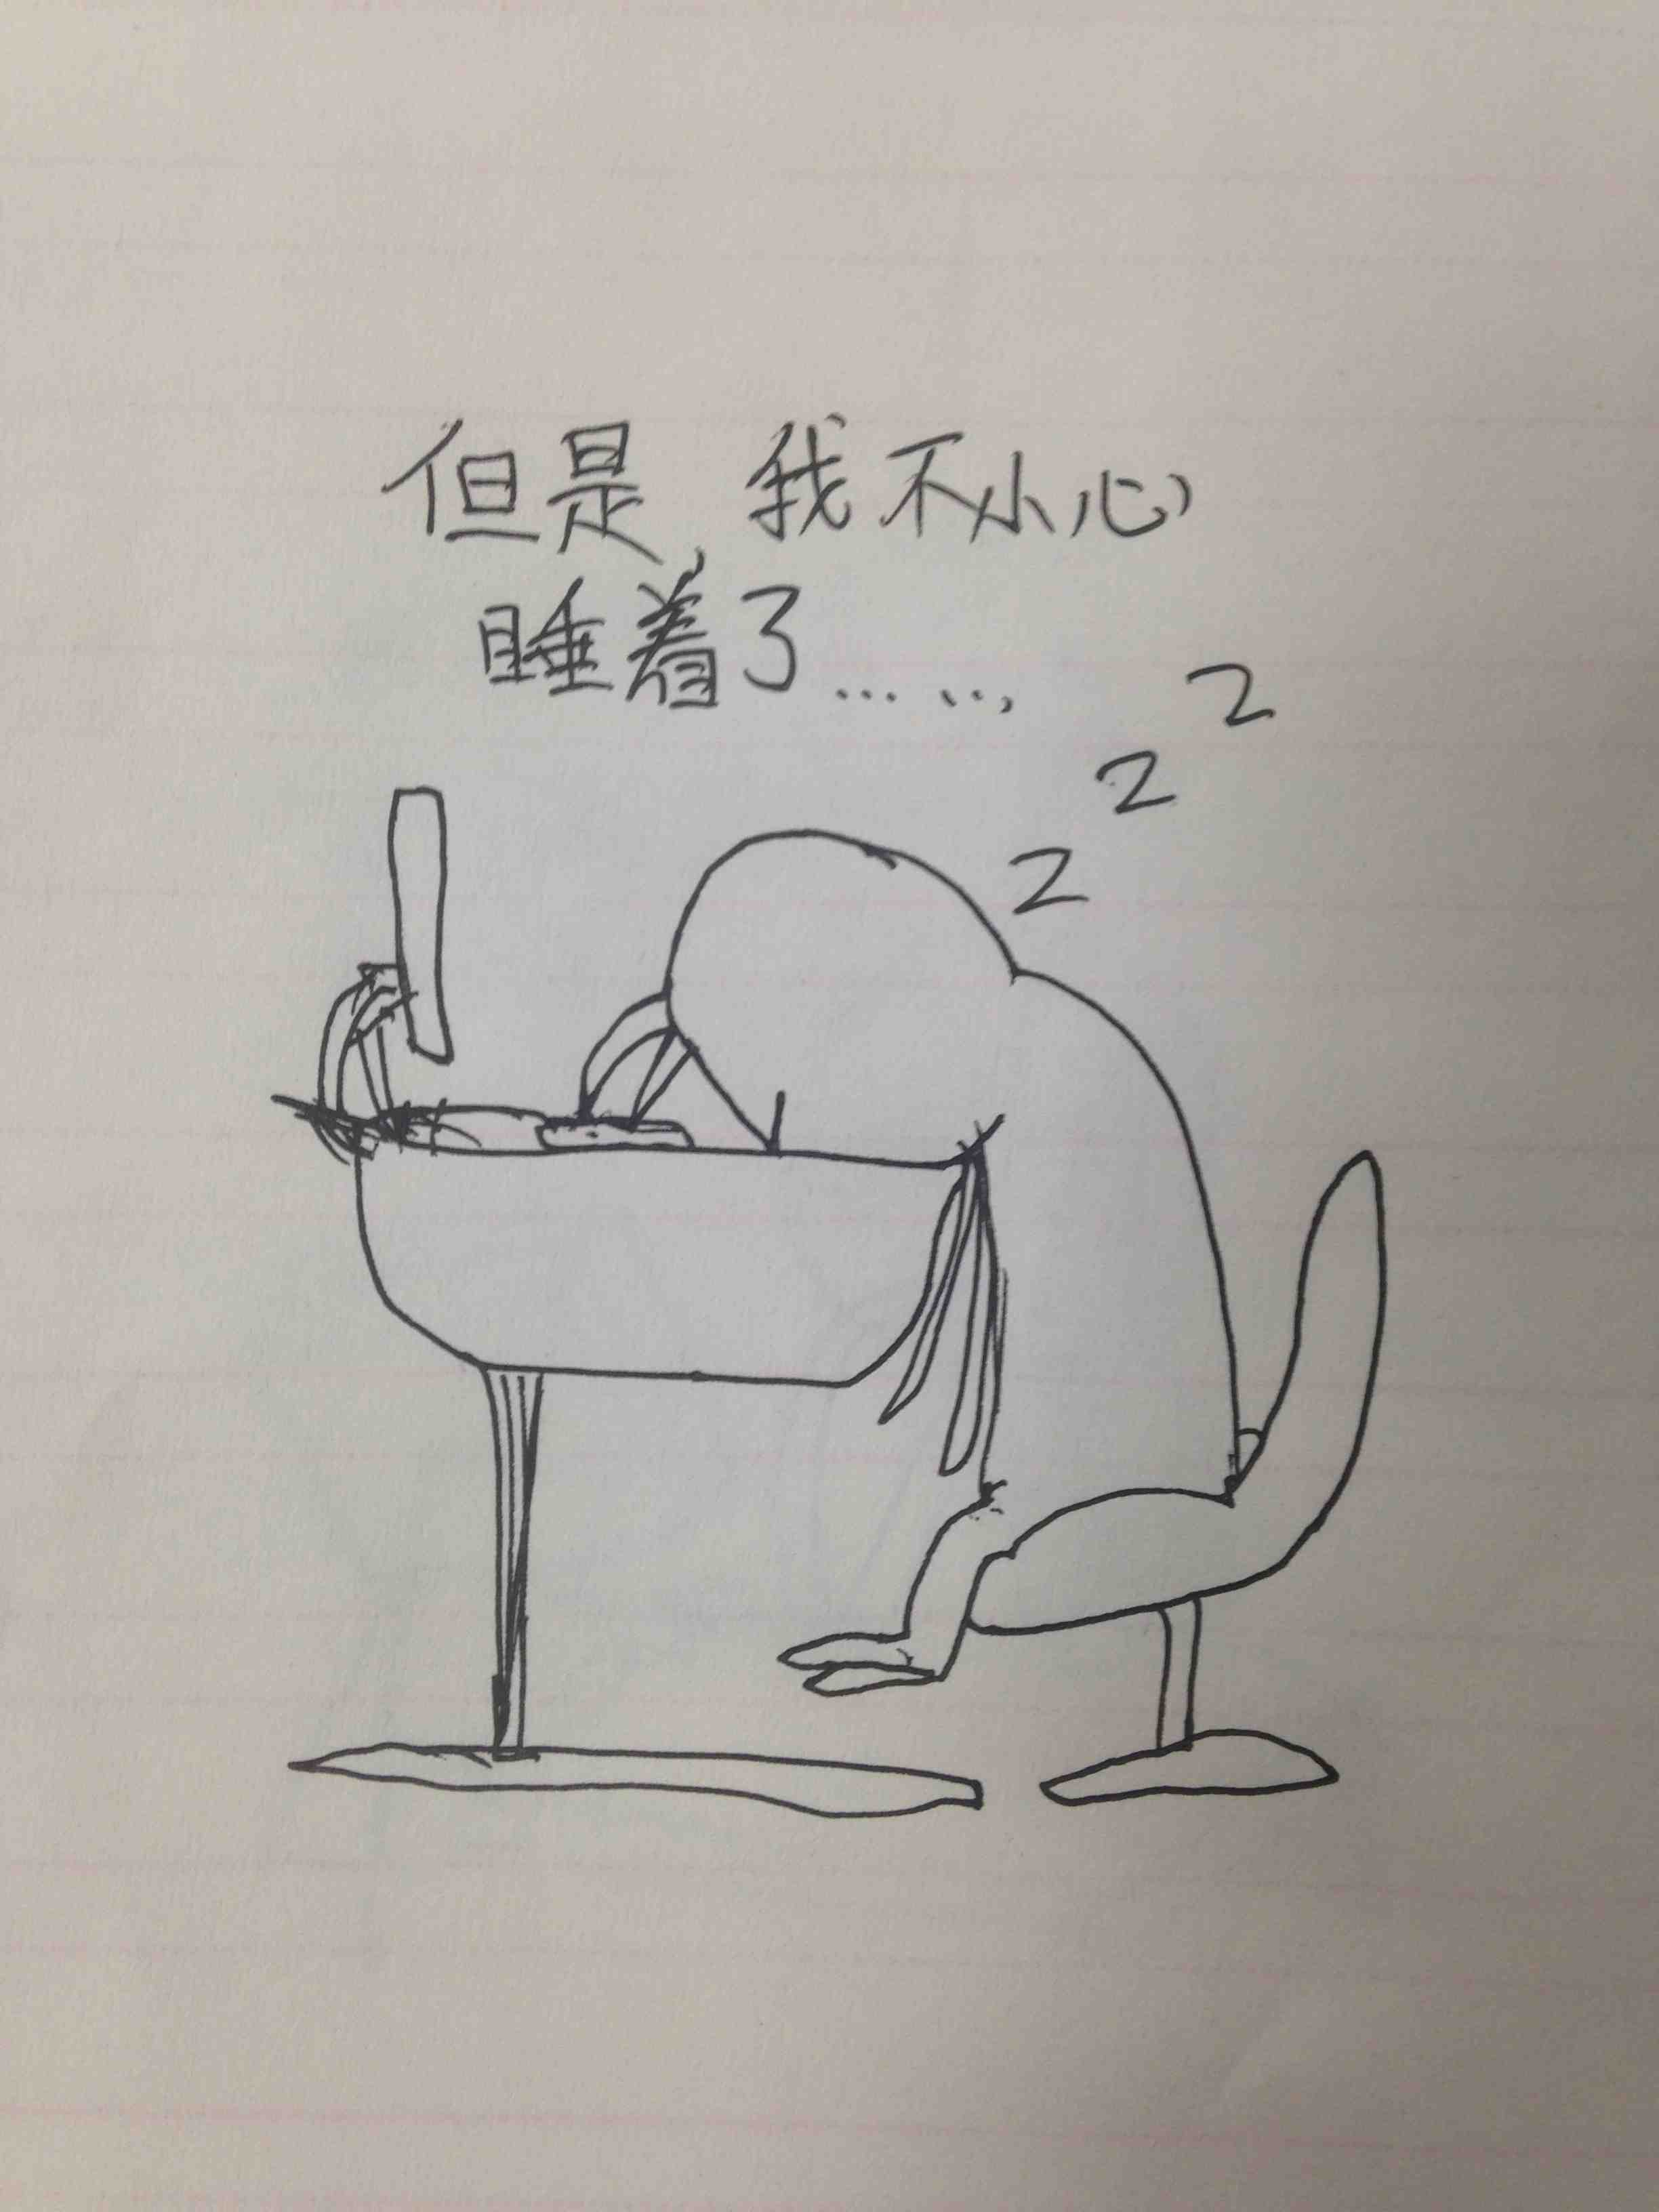 但是，我不小心
睡着了……
z
z
z